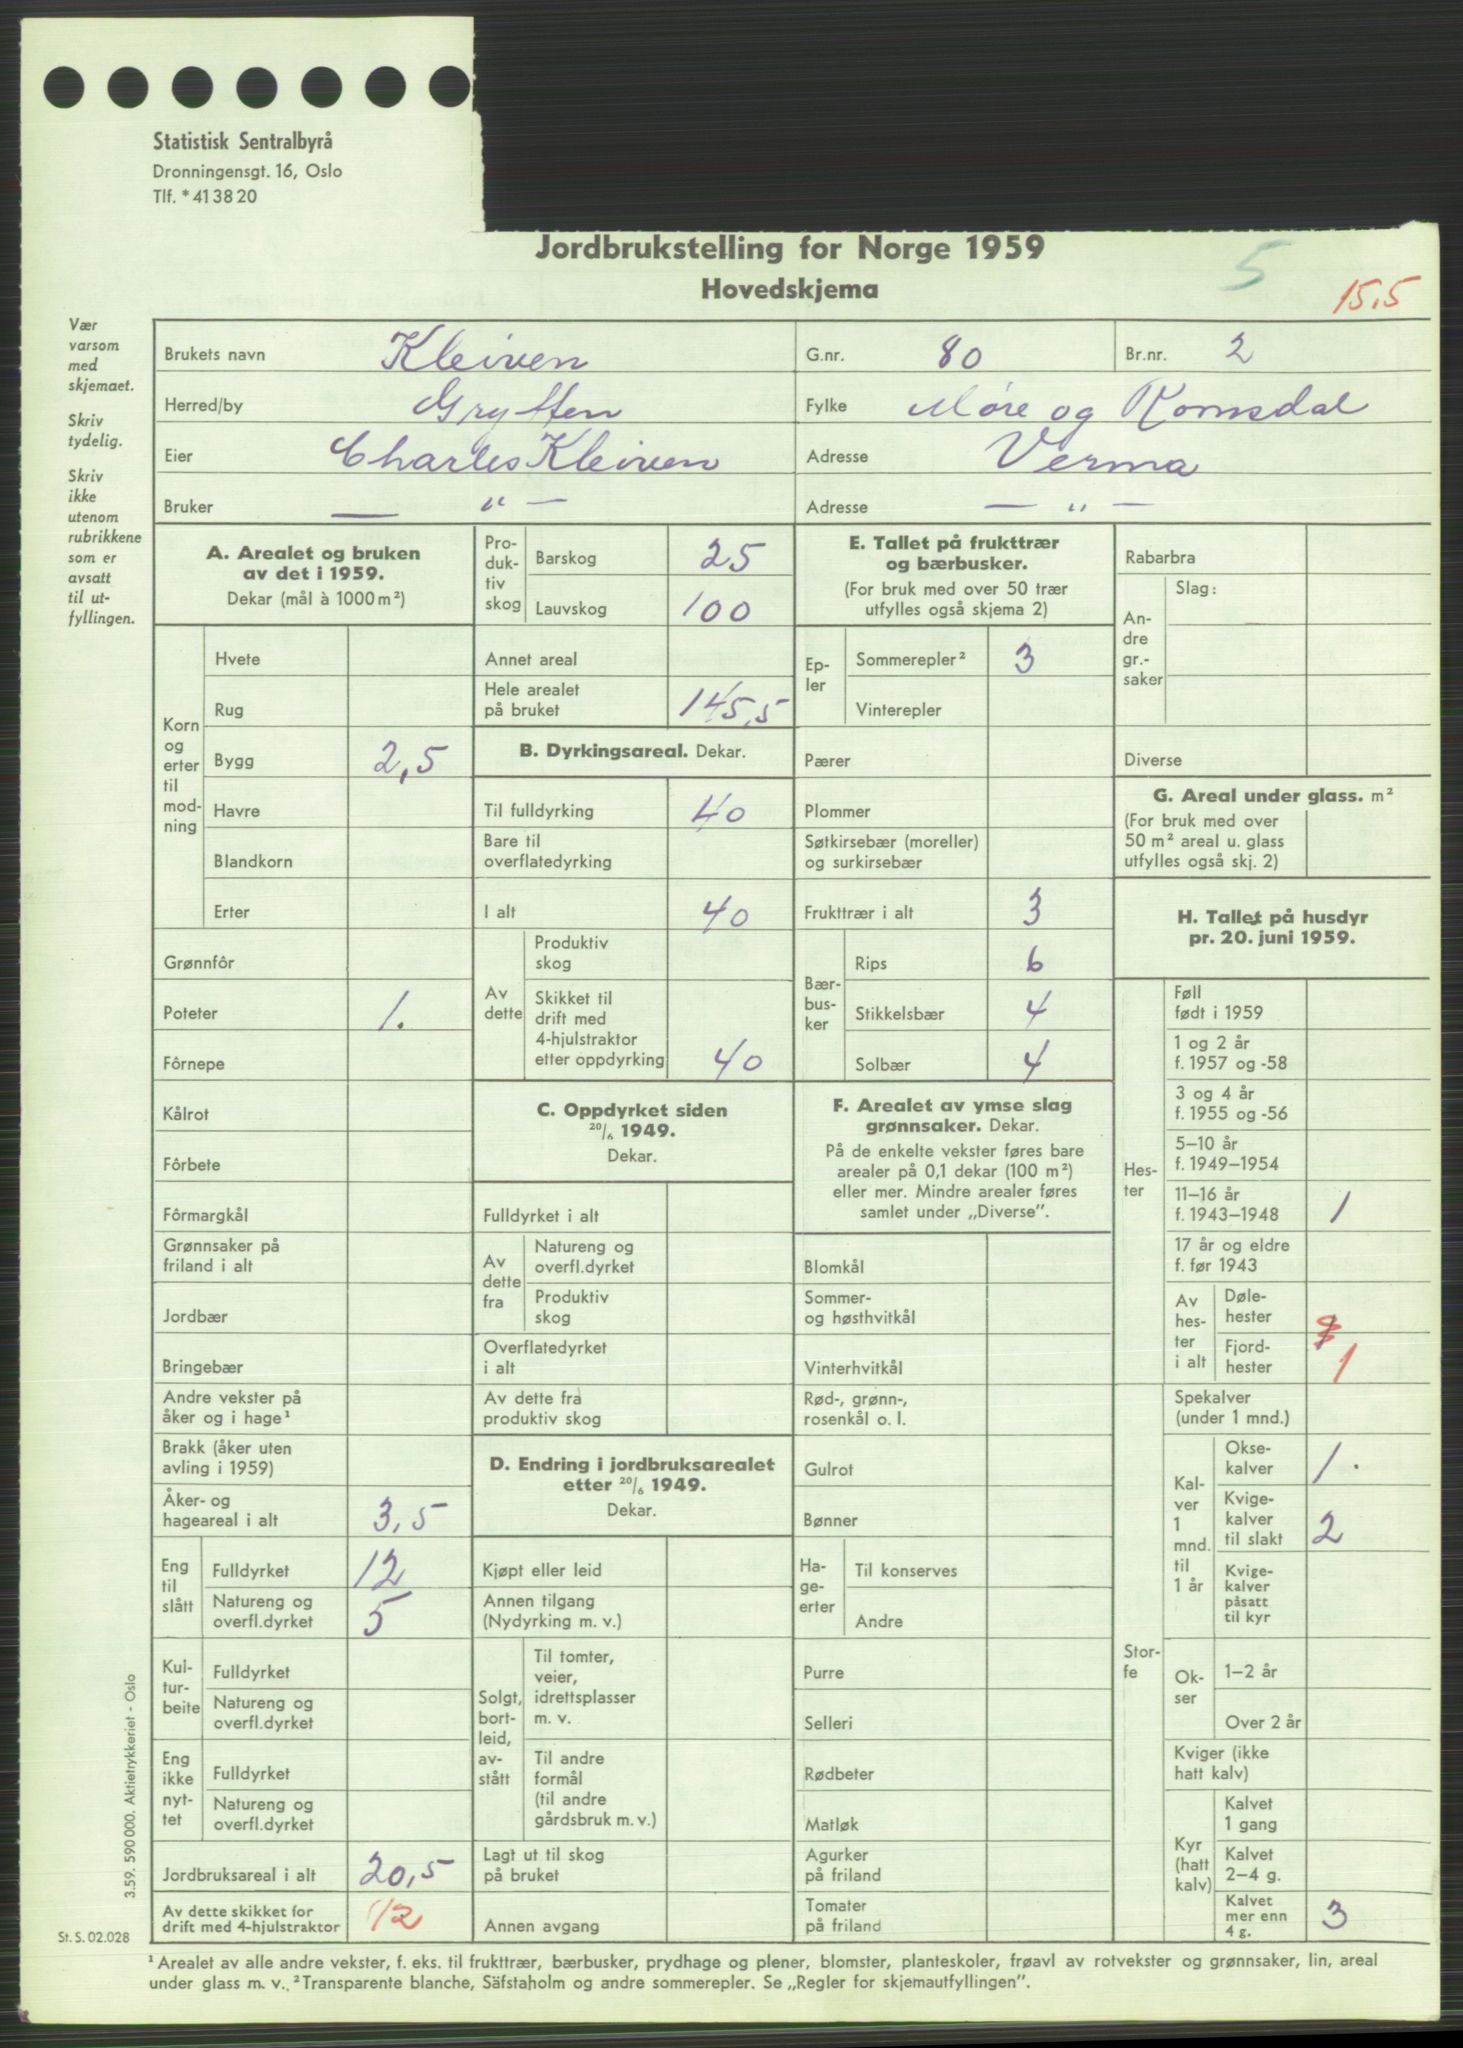 Statistisk Sentralbyrå
Dronningensgt. 16, Oslo
Tlf. * 41 38 20
Jordbrukstelling for Norge 1959
Hovedskjema
5
15,5
Vær
varsom
med
skjemaet.
Skriv
tydelig.
Skriv
ikke
utenom
rubrikkene
som er
avsatt
til ut-
fyllingen.
Brukets navn Kleiven G.nr. 80 Br.nr. 2
Herred/by Grytten Fylke Møre og Romsdal
Eier Charles Kleiven Adresse Verma
Bruker — " — Adresse — " —
A. Arealet og bruken
av det i 1959.
Dekar (mål à 1000 m²)
Korn
og
erter
til
mod-
ning
Hvete
Rug
Bygg 2,5
Havre
Blandkorn
Erter
Grønnfôr
Poteter 1.
Fôrnepe
Kålrot
Fôrbete
Fôrmargkål
Grønnsaker på
friland i alt
Jordbær
Bringebær
Andre vekster på
åker og i hage¹
Brakk (åker uten
avling i 1959)
Åker- og
hageareal i alt 3,5
Eng
til
slått
Fulldyrket 12
Natureng og
overfl.dyrket 5
Kul-
tur-
beite
Fulldyrket
Natureng og
overfl.dyrket
Eng
ikke
nyt-
tet
Fulldyrket
Natureng og
overfl.dyrket
Jordbruksareal i alt 20,5
Av dette skikket for
drift med 4-hjulstraktor 12
Pro-
duk-
tiv
skog
Barskog 25
Lauvskog 100
Annet areal
Hele arealet
på bruket 145,5
B. Dyrkingsareal. Dekar.
Til fulldyrking 40
Bare til
overflatedyrking
I alt 40
Av
dette
Produktiv
skog
Skikket til
drift med
4-hjulstraktor
etter oppdyrking 40
C. Oppdyrket siden
20/6 1949.
Dekar.
Fulldyrket i alt
Av
dette
fra
Natureng og
overfl.dyrket
Produktiv
skog
Overflatedyrket
i alt
Av dette fra
produktiv skog
D. Endring i jordbruksarealet
etter 20/6 1949.
Dekar.
Kjøpt eller leid
Annen tilgang
(Nydyrking m. v.)
Solgt,
bort-
leid,
av-
stått
Til tomter,
veier,
idrettsplasser
m. v.
Til andre
formål
(til andre
gårdsbruk m. v.)
Lagt ut til skog
på bruket
Annen avgang
E. Tallet på frukttrær
og bærbusker.
(For bruk med over 50 trær
utfylles også skjema 2)
Ep-
ler
Sommerepler² 3
Vinterepler
Pærer
Plommer
Søtkirsebær (moreller)
og surkirsebær
Frukttrær i alt 3
Bær-
bus-
ker
Rips 6
Stikkelsbær 4
Solbær 4
F. Arealet av ymse slag
grønnsaker. Dekar.
På de enkelte vekster føres bare
arealer på 0,1 dekar (100 m²)
eller mer. Mindre arealer føres
samlet under „Diverse".
Blomkål
Sommer-
og høsthvitkål
Vinterhvitkål
Rød-, grønn-,
rosenkål o. l.
Gulrot
Bønner
Ha-
ge-
erter
Til konserves
Andre
Purre
Selleri
Rødbeter
Matløk
Agurker
på friland
Tomater
på friland
Rabarbra
An-
dre
gr.-
saker
Slag:
Diverse
G. Areal under glass. m²
(For bruk med over
50 m² areal u. glass
utfylles også skj. 2)
H. Tallet på husdyr
pr. 20. juni 1959.
Hes-
ter
Føll
født i 1959
1 og 2 år
f. 1957 og -58
3 og 4 år
f. 1955 og -56
5–10 år
f. 1949–1954
11–16 år
f. 1943–1948 1
17 år og eldre
f. før 1943
Av
hes-
ter
i alt
Døle-
hester
Fjord-
hester 1
Stor-
fe
Spekalver
(under 1 mnd.)
Kal-
ver
1
mnd.
til
1 år
Okse-
kalver 1.
Kvige-
kalver
til slakt 2
Kvige-
kalver
påsatt
til kyr
Ok-
ser
1–2 år
Over 2 år
Kviger (ikke
hatt kalv)
Kyr
(hatt
kalv)
Kalvet
1 gang
Kalvet
2–4 g.
Kalvet
mer enn
4 g. 3
3.59. 590 000. Aktietrykkeriet - Oslo
St. S. 02.028
¹ Arealet av alle andre vekster, f. eks. til frukttrær, bærbusker, prydhage og plener, blomster, planteskoler, frøavl av rotvekster og grønnsaker, lin, areal
under glass m. v. ² Transparente blanche, Säfstaholm og andre sommerepler. Se „Regler for skjemautfyllingen".